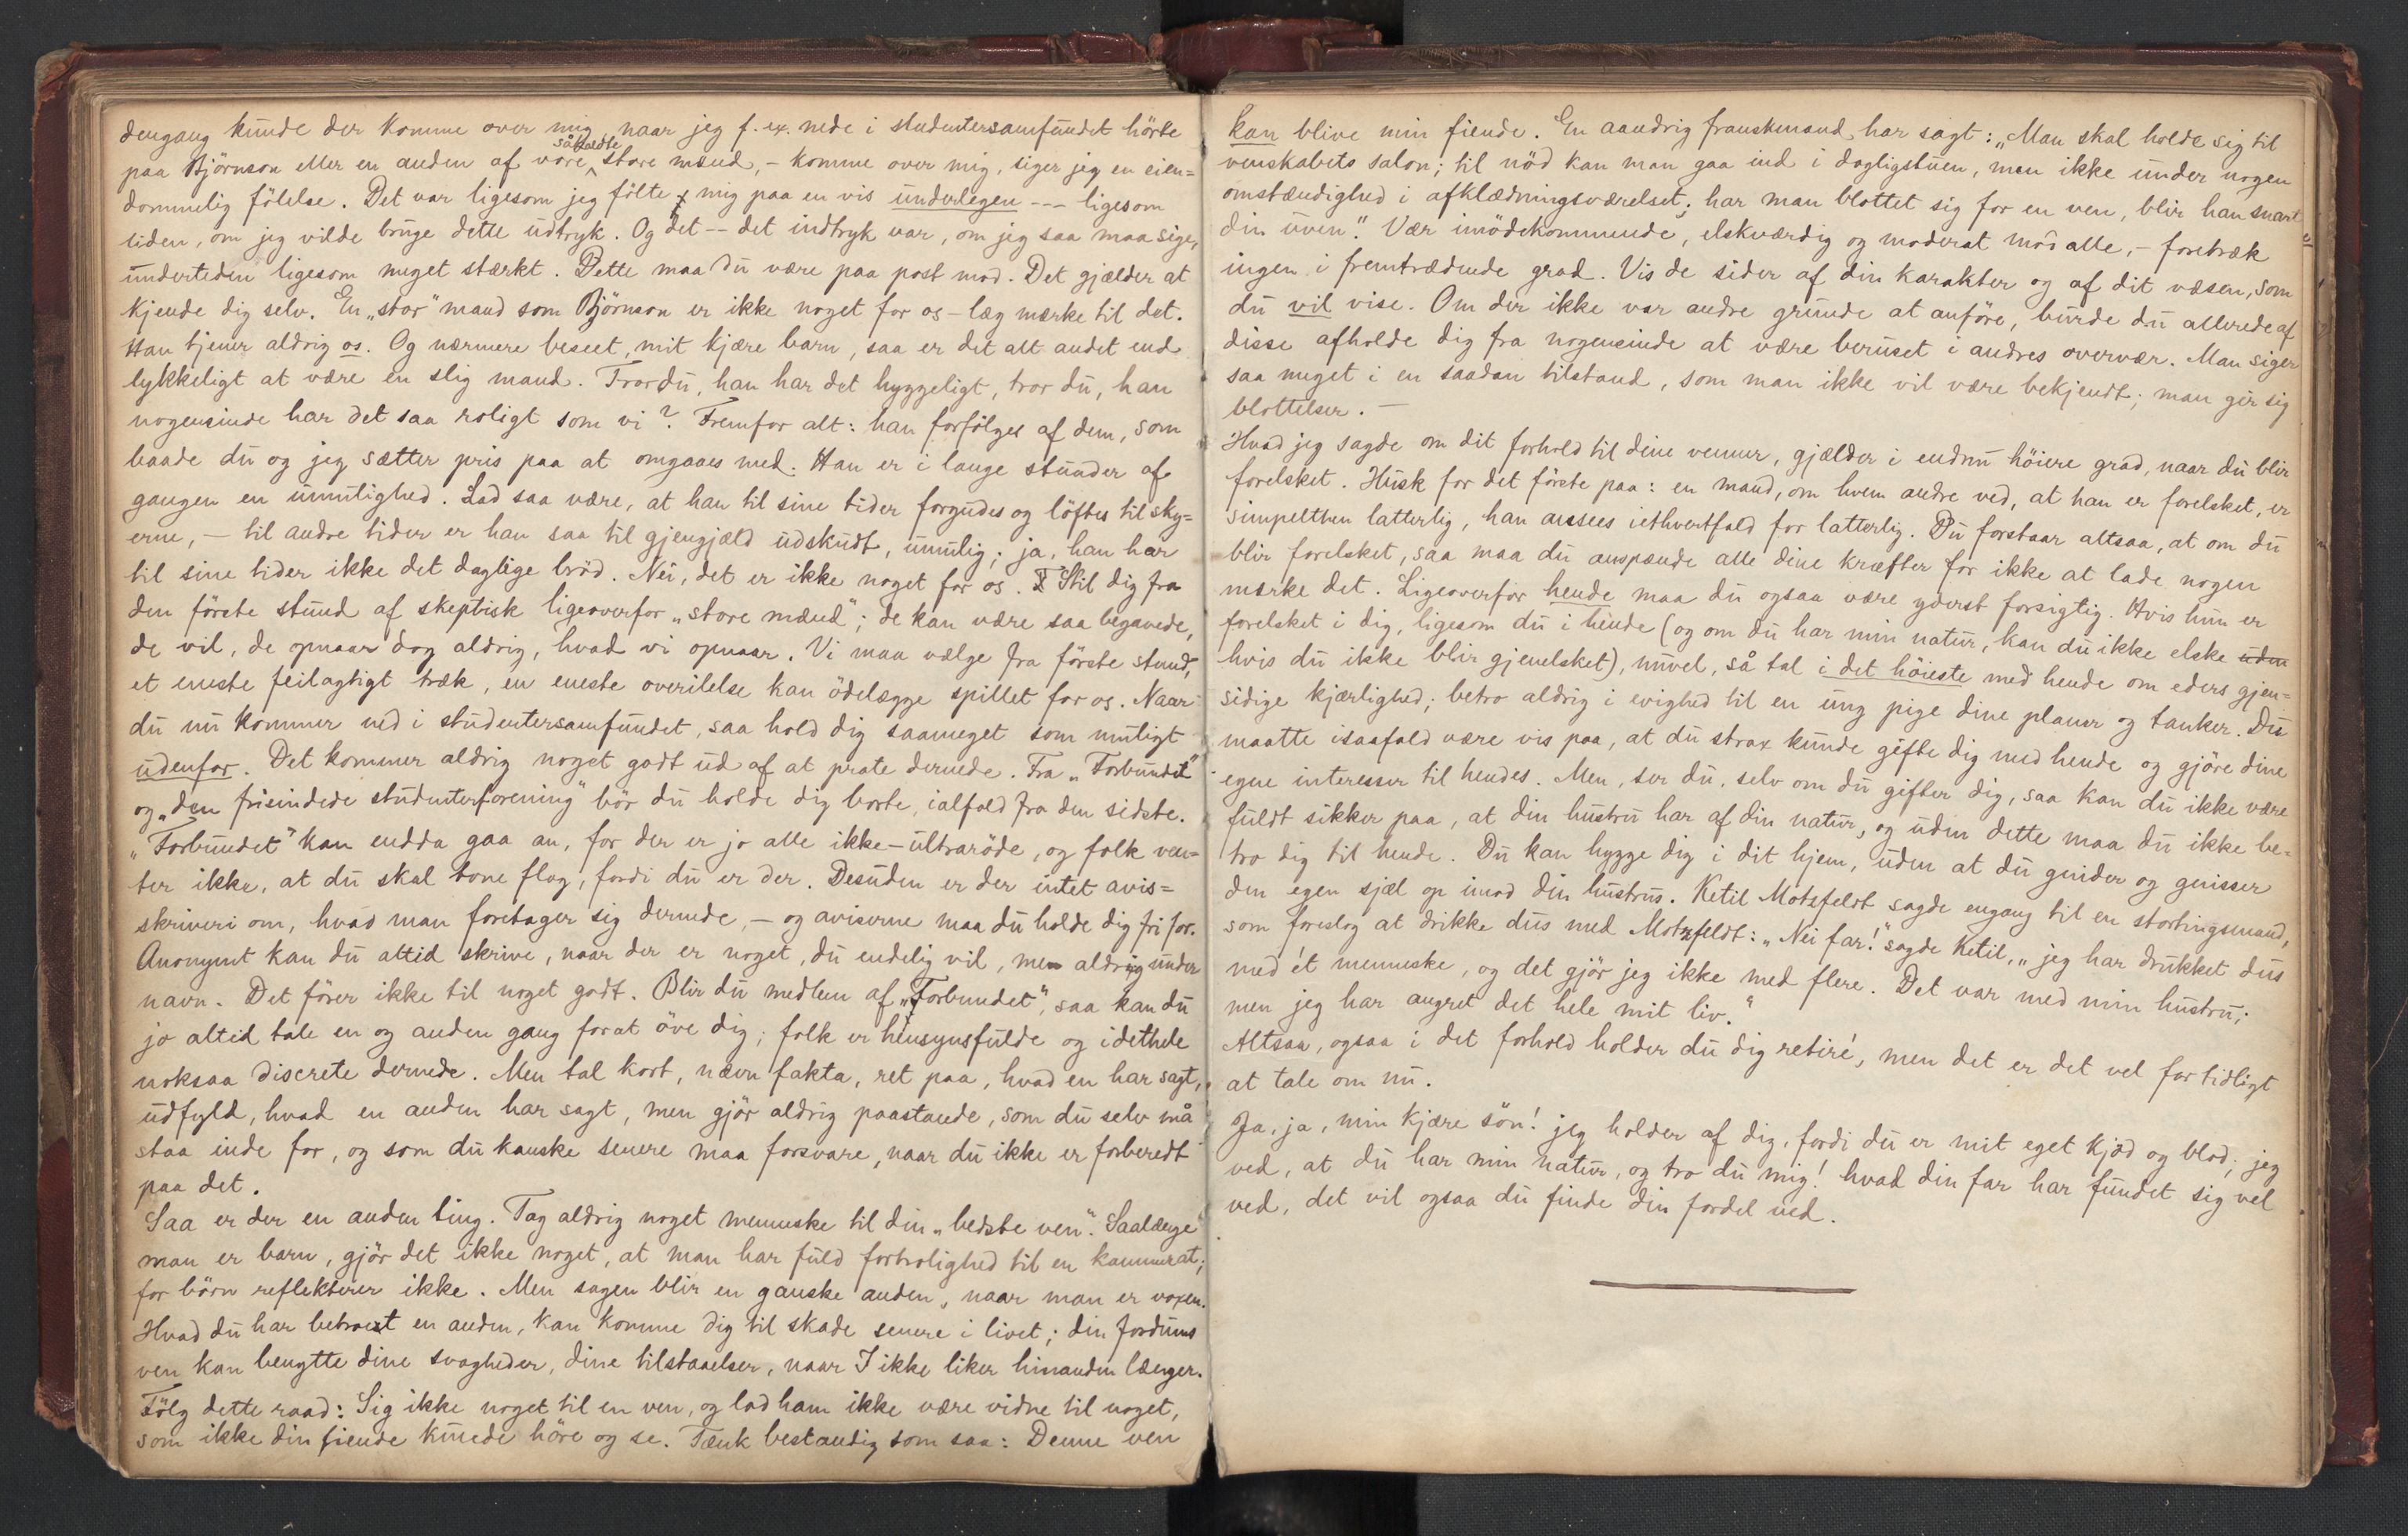 dengang kunde der komme over mig, naar jeg f. ex. nede i studentersamfundet hörte
paa Björnson eller en anden af vore såkaldte store mænd, – komme over mig, siger jeg en eien=
dommelig fölelse. Det var ligesom jeg fölte mig paa en vis underlegen --- ligesom
liden, om jeg vilde bruge dette udtryk. Og det -- det indtryk var, om jeg saa maa sige,
undertiden ligesom meget stærkt. Dette maa du være paa post mod. Det gjælder at
kjende dig selv. En „stor“ mand som Björnson er ikke noget for os – læg mærke til det.
Han tjener aldrig os. Og nærmere beseet, mit kjære barn, saa er det alt andet end
lykkeligt at være en slig mand. Tror du, han har det hyggeligt, tror du, han
nogensinde har det saa roligt som vi? Fremfor alt: han forfölges af dem, som
baade du og jeg sætter pris paa at omgaaes med. Han er i lange stunder af
gangen en umulighed. Lad saa være, at han til sine tider forgudes og löftes til sky=
erne, – til andre tider er han saa til gjengjæld udskudt, umulig; ja, han har
til sine tider ikke det daglige bröd. Nei, det er ikke noget for os. Stil dig fra
den förste stund af skeptisk ligeoverfor „store mænd“; de kan være saa begavede,
de vil, de opnaar dog aldrig, hvad vi opnaar. Vi maa vælge fra förste stund,
et eneste feilagtigt træk, en eneste overilelse kan ödelægge spillet for os. Naar
du nu kommer ned i studentersamfundet, saa hold dig saameget som muligt
udenfor. Det kommer aldrig noget godt ud af at prate dernede. Fra „Forbundet“
og „den frisindede studenterforening“ bör du holde dig borte, ialfald fra den sidste.
„Forbundet“ kan endda gaa an, for der er jo alle ikke-ultraröde, og folk ven=
ter ikke, at du skal tone flag, fordi du er der. Desuden er der intet avis=
skriveri om, hvad man foretager sig dernede, – og aviserne maa du holde dig fri for.
Anonymt kan du altid skrive, naar der er noget, du endelig vil, men aldrig under
navn. Det förer ikke til noget godt. Blir du medlem af „Forbundet“, saa kan du
jo altid tale en og anden gang forat öve dig; folk er hensynsfulde og idethele
noksaa discrete dernede. Men tal kort, nævn fakta, ret paa, hvad en har sagt,
udfyld, hvad en anden har sagt, men gjör aldrig paastande, som du selv må
staa inde for, og som du kanske senere maa forsvare, naar du ikke er forberedt
paa det.
Saa er der en anden ting. Tag aldrig noget menneske til din „bedste ven“. Saalænge
man er barn, gjör det ikke noget, at man har fuld fortrolighed til en kammerat;
for börn reflekterer ikke. Men sagen blir en ganske anden, naar man er voxen.
Hvad du har betroet en anden, kan komme dig til skade senere i livet; din fordums
ven kan benytte dine svagheder, dine tilstaaelser, naar I ikke liker hinanden længer.
Fölg dette raad: Sig ikke noget til en ven, og lad ham ikke være vidne til noget,
som ikke din fiende kunde höre og se. Tænk bestandig som saa: Denne ven
kan blive min fiende. En aandrig franskmand har sagt: „Man skal holde sig til
venskabets salon; til nöd kan man gaa ind i dagligstuen, men ikke under nogen
omstændighed i afklædningsværelset; har man blottet sig for en ven, blir han snart
din uven“. Vær imödekommende, elskværdig og moderat mod alle, – foretræk
ingen i fremtrædende grad. Vis de sider af din karakter og af dit væsen, som
du vil vise. Om der ikke var andre grunde at anföre, burde du allerede af
disse afholde dig fra nogensinde at være beruset i andres overvær. Man siger
saa meget i en saadan tilstand, som man ikke vil være bekjendt; man gir sig
blottelser. –
Hvad jeg sagde om dit forhold til dine venner, gjælder i endnu höiere grad, naar du blir
forelsket. Husk for det förste paa: en mand, om hvem andre ved, at han er forelsket, er
simpelthen latterlig, han ansees iethvertfald for latterlig. Du forstaar altsaa, at om du
blir forelsket, saa maa du anspænde alle dine kræfter for ikke at lade nogen
mærke det. Ligeoverfor hende maa du ogsaa være yderst forsigtig. Hvis hun er
forelsket i dig, ligesom du i hende (og om du har min natur, kan du ikke elske uden
hvis du ikke blir gjenelsket), nuvel, så tal i det höieste med hende om eders gjen=
sidige kjærlighed; betro aldrig i evighed til en ung pige dine planer og tanker. Du
maatte isaafald være vis paa, at du strax kunde gifte dig med hende og gjöre dine
egne interesser til hendes. Men, ser du, selv om du gifter dig, saa kan du ikke være
fuldt sikker paa, at din hustru har af din natur, og uden dette maa du ikke be=
tro dig til hende. Du kan hygge dig i dit hjem, uden at du gnider og gnisser
den egen sjæl op imod din hustrus. Ketil Motzfeldt sagde engang til en stortingsmand,
som foreslog at drikke dus med Motzfeldt: „Nei far!“ sagde Ketil, „jeg har drukket dus
med ét menneske, og det gjör jeg ikke med flere. Det var med min hustru;
men jeg har angret det hele mit liv.“
Altsaa, ogsaa i det forhold holder du dig retiré, men det er det vel for tidligt
at tale om nu.
Ja, ja, min kjære sön! jeg holder af dig, fordi du er mit eget kjöd og blod; jeg
ved, at du har min natur, og tro du mig! hvad din far har fundet sig vel
ved, det vil ogsaa du finde din fordel ved.